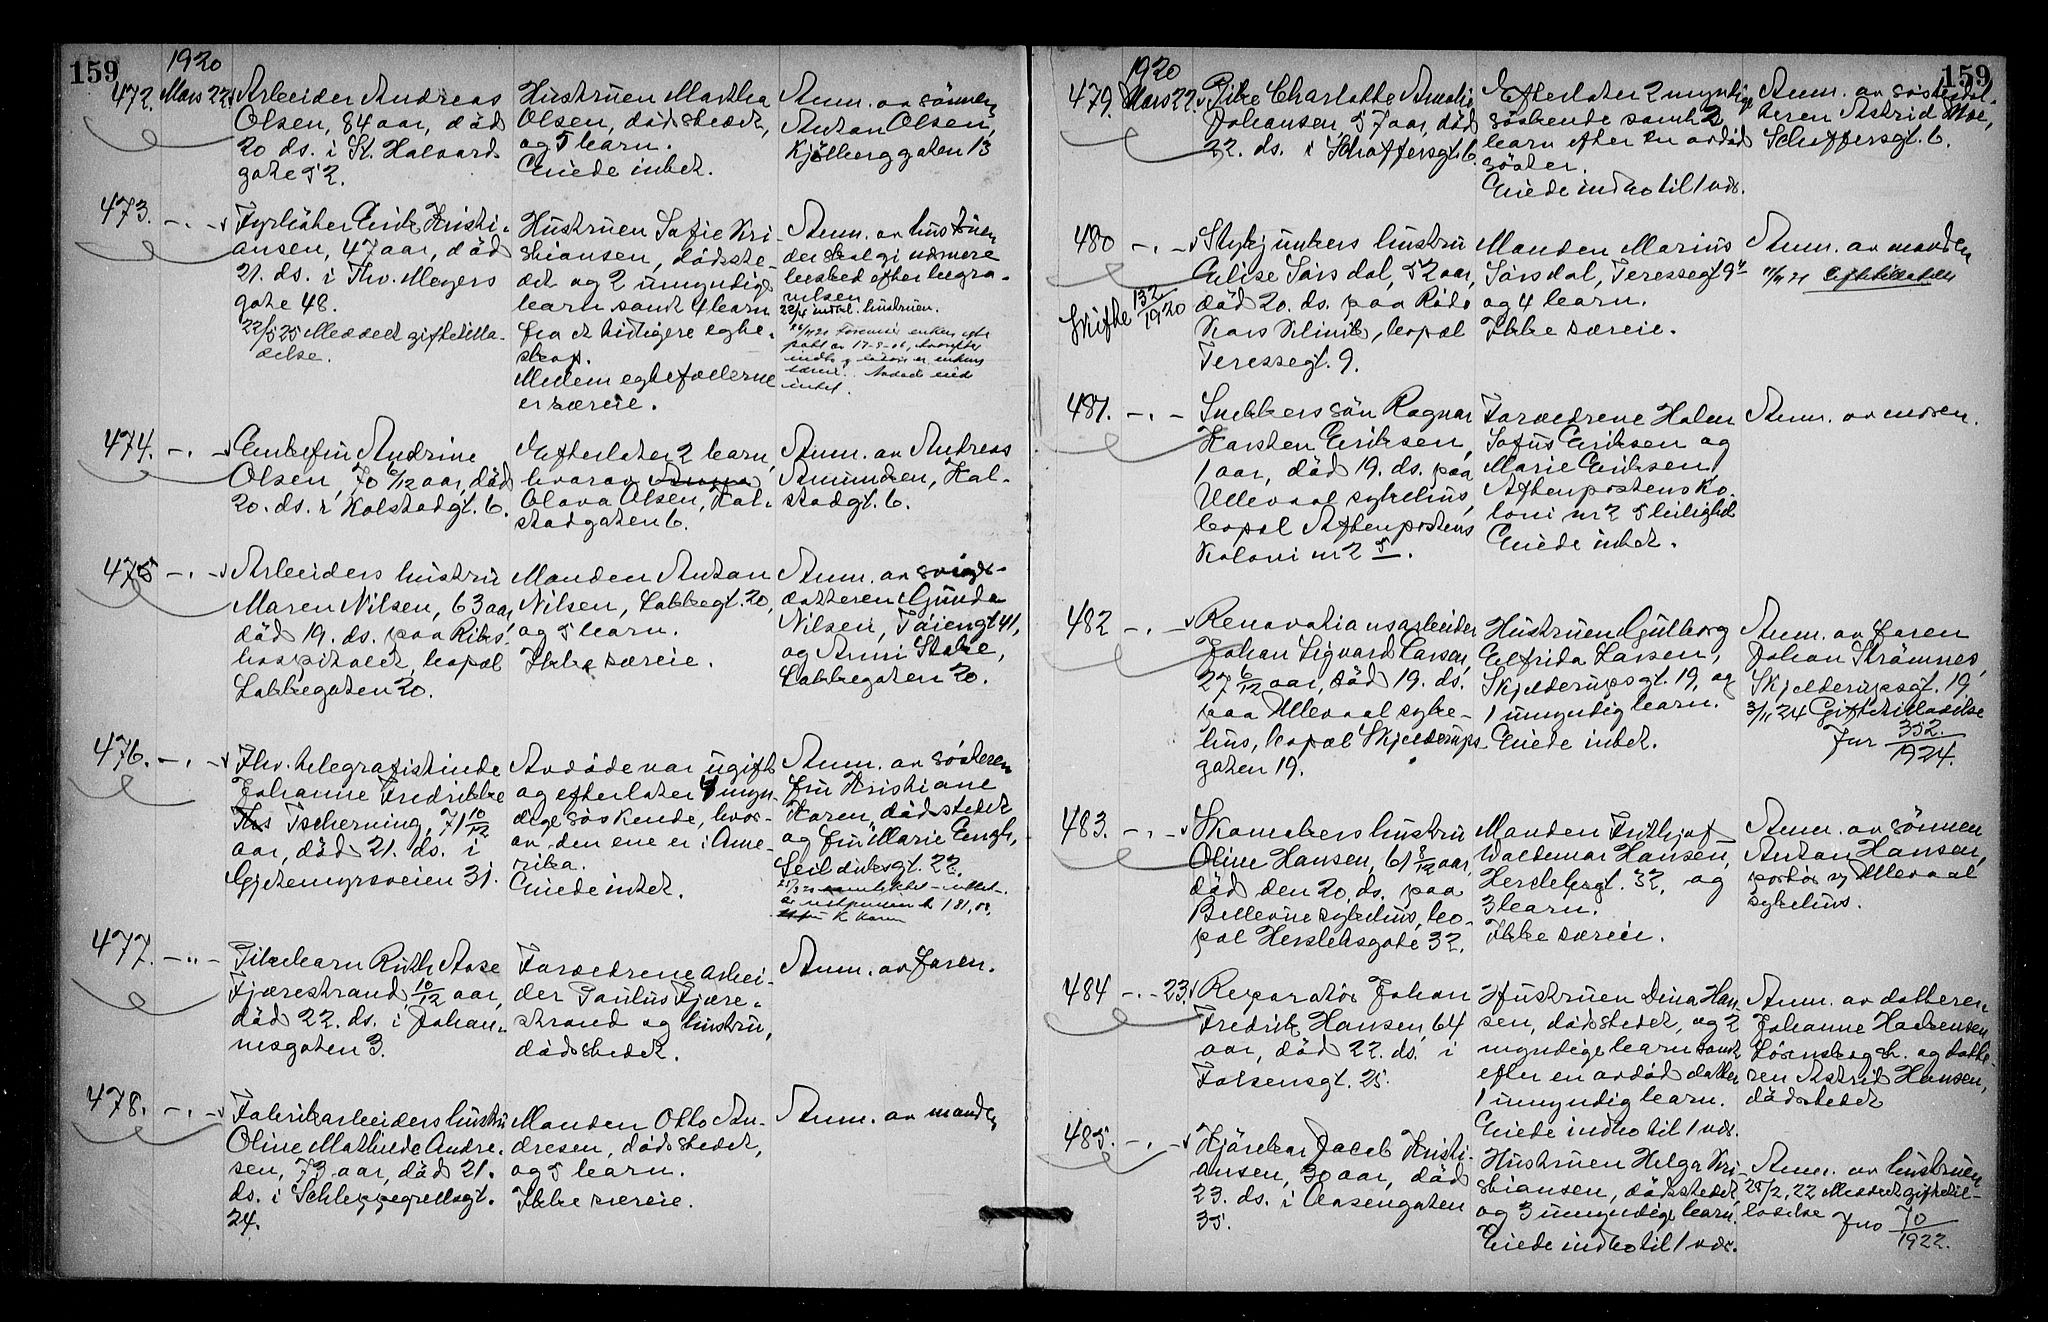 159
1920
472. Mars 22. Arbeider Andreas
Olsen, 84 aar, død
20 ds. i St. Halvards
gate 52.
Hustruen Martha
Olsen, dødsstedet,
og 5 barn.
Eiede intet.
Anm. av sønnen
Anton Olsen,
Kjølberggaten 13
473. -"-
Fyrbøter Emil Kristi-
ansen, 47 aar, død
21. ds. i Thv. Meyers
gate 48.
22/5 25 Meddelt giftetilla-
delse.
Hustruen Sofie Kri-
stiansen, dødsste-
det og 2 umyndige
barn samt 4 barn
fra et tidligere egte-
skap.
Mellem egtefællerne
er særeie.
Anm. av hustruen
der skal gi nærmere
besked efter begra-
velsen.
474. -"-
Enkefru Andrine
Olsen, 70 6/12 aar, død
20. ds. i Kolstadgt. 6.
Efterlater 2 barn,
hvorav Anna
Olava Olsen, Kol-
stadgaten 6.
Anm. av Andreas
Amundsen, Kol-
stadgt. 6.
475 -"-
Arbeiders hustru
Maren Nilsen, 63 aar,
død 19. ds. paa Riks-
hospitalet, bopæl
Lakkegaten 20.
Manden Anton
Nilsen, Lakkegt. 20,
og 5 barn.
Ikke særeie.
Anm. av sviger-
datteren Gunda
Nilsen, Tøiengt 41,
og Anni Stake,
Lakkegaten 20.
476. -"-
Fhv. telegrafistinde
Johanne Fredrikke
Ths Tscherning, 71 10/12
aar, død 21. ds. i
Gjetemyrsveien 31.
Avdøde var ugift
og efterlater 4 myn-
dige søskende, hvor-
av den ene er i Ame-
rika.
Eiede intet.
Anm. av søsteren
fru Kristiane
Karen, dødsstedet
og fru Marie Engh,
Seilduksgt. 22.
477. -"-
Pikebarn Ruth Aase
Fjærestrand, 10/12 aar,
død 22. ds. i Johan-
nesgaten 3.
Forældrene arbei-
der Paulus Fjære-
strand og hustru,
dødsstedet.
Anm. av faren.
478. -"-
Fabrikarbeiders hustru
Oline Mathilde Andre-
sen, 73 aar, død 21.
ds. i Schleppegrellsgt.
24.
Manden Otto An-
dresen, dødsstedet,
og 5 barn.
Ikke særeie.
Anm. av manden
159
1920
479. Mars 22. Pike Charlotte Amalie
Johansen, 57 aar, død
22. ds. i Schaffersgt. 6.
Efterlater 2 myndige
søskende samt 2
barn efter en avdød
søster.
Eiede indbo til 1 vær.
Anm. av søsterdat-
teren Astrid Moe,
Schaffersgt. 6.
480 -"-
Skifte 132/1920
Stykjunkers hustru
Elise Sørsdal, 52 aar,
død 20. ds. paa Røde
Kors Klinik, bopæl
Teressegt. 9.
Manden Marius
Sørsdal, Teressegt 9
og 4 barn.
Ikke særeie.
Anm. av manden
481. -"-
Snekkers søn Ragnar
Karsten Eriksen,
1 aar, død 19. ds. paa
Ullevaal sykehus,
bopæl Aftenpostens
Koloni nr 2 5.
Forældrene Holm
Sofus Eriksen og
Marie Eriksen,
Aftenpostens Ko-
loni nr 2 5 leilighet
Eiede intet.
Anm. av moren.
482 -"-
Renovationsarbeider
Johan Sigvard Larsen,
27 6/12 aar, død 19. ds.
paa Ullevaal syke-
hus, bopæl Skjelderups
gaten 19.
Hustruen Gulborg
Elfrida Larsen,
Skjelderupsgt. 19, og
1 umyndig barn.
Eiede intet.
Anm. av faren
Johan Strømnes,
Skjelderupsgt. 19,
3/11 24 Giftetilladelse
Jnr 352./1924.
483. -"-
Skomakers hustru
Oline Hansen, 61 8/12 aar,
død den 20. ds. paa
Bellevue sykehus, bo-
pæl Herslebsgate 32.
Manden Frithjof
Waldemar Hansen,
Herslebsgt. 32, og
3 barn.
Ikke særeie.
Anm. av sønnen
Anton Hansen,
portør ved Ullevaal
sykehus.
484 -"- 23.
Reparatør Johan
Fredrik Hansen, 64
aar, død 22. ds. i
Falsensgt. 25.
Hustruen Dina Han-
sen, dødsstedet, og 2
myndige barn samt
efter en avdød datter
1 umyndig barn.
Eiede indbo til 1 vær.
Anm. av datteren
Johanne Haakensen,
og datte-
ren Astrid Hansen,
dødsstedet
485. -"-
Kjørekar Jacob Kristi-
ansen, 30 aar, død
23. ds. i Aasengaten
35.
Hustruen Helga Kri-
stiansen, dødsstedet,
og 3 umyndige barn.
Eiede indbo til 1 vær.
Anm. av hustruen
25/2.22 Meddelt giftetil-
ladelse Jno 70/1922.